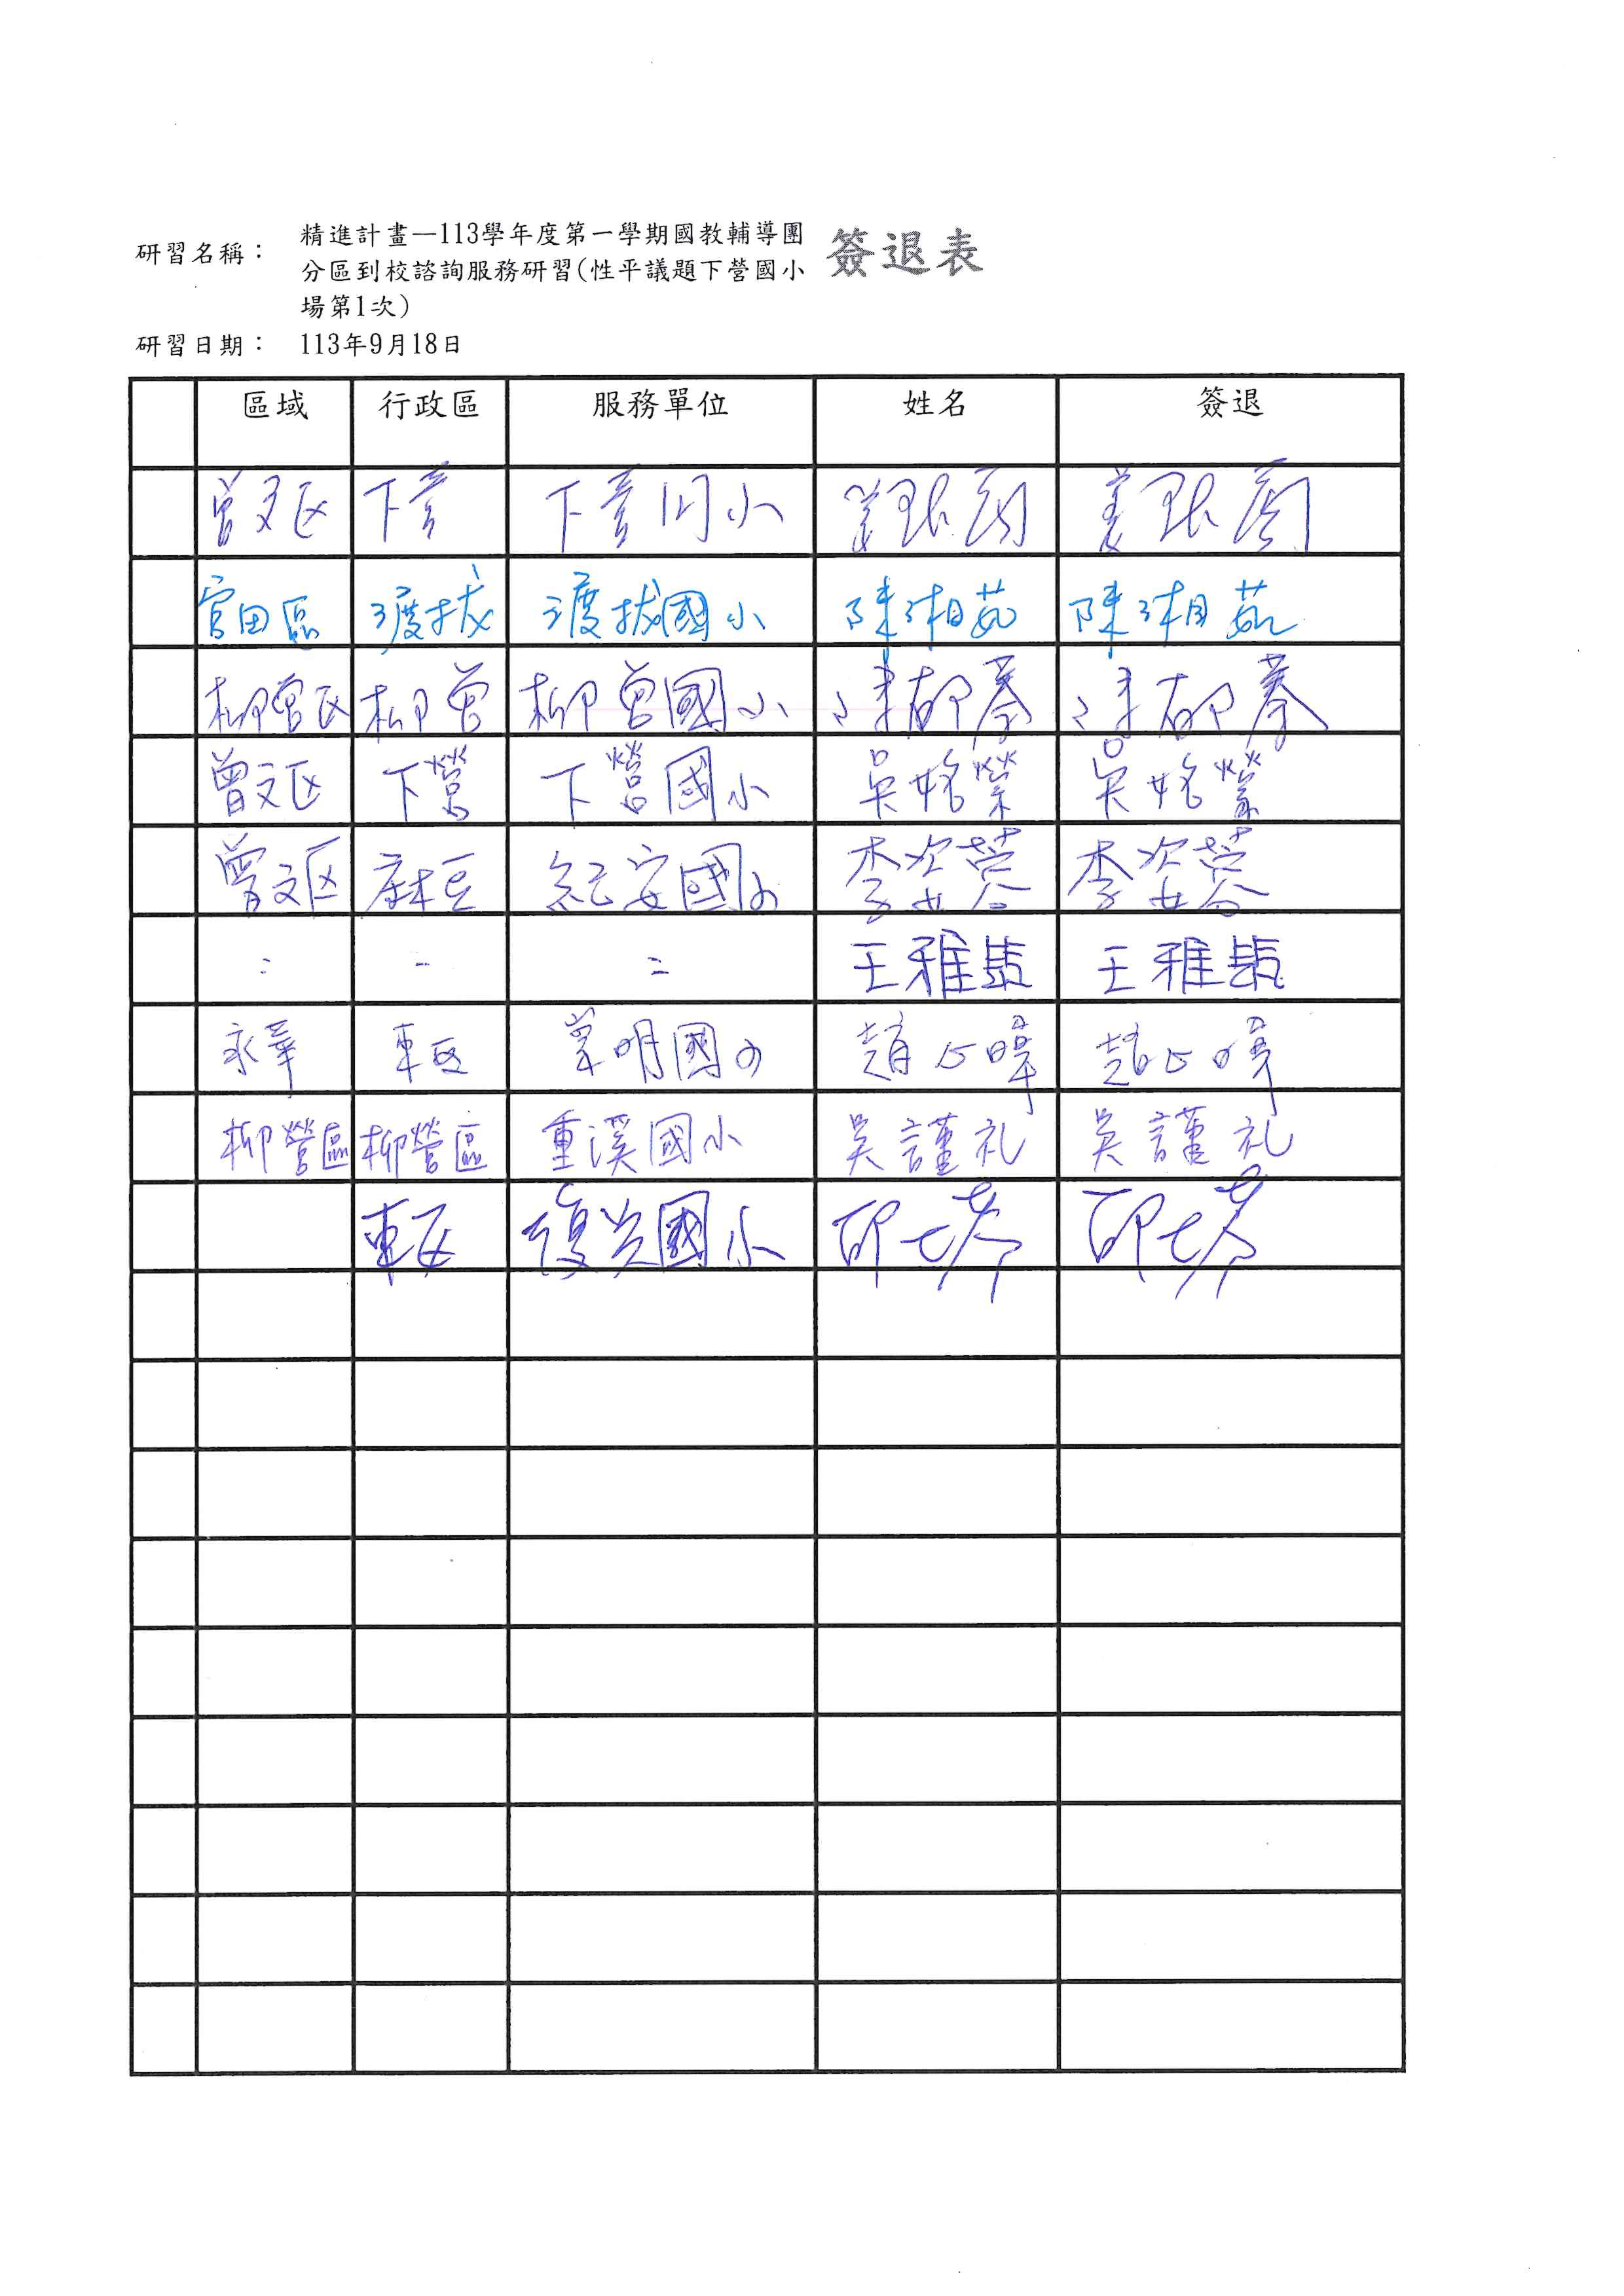 研習名稱：
精進計畫—113學年度第一學期國教輔導團
分區到校諮詢服務研習(性平議題下營國小
場第1次)
簽退表
研習日期： 113年9月18日
區域 行政區 服務單位 姓名 簽退
曾文区 下营 下营国小
官田區 渡拔 渡拔國小 陳湘茹 陳湘茹
柳营区 柳营 柳营國小 陳郁蓁 陳郁蓁
曾文区 下營 下營國小 吳姳縈 吳姳縈
曾文区 麻豆 紀安國小 李姿蓉 李姿蓉
〃 〃 〃 王雅 王雅
永華 東区 崇明國小 趙 暐 趙 暐
柳營區 柳營區 重溪國小 吳謹礼 吳謹礼
東区 復興國小 邱 邱